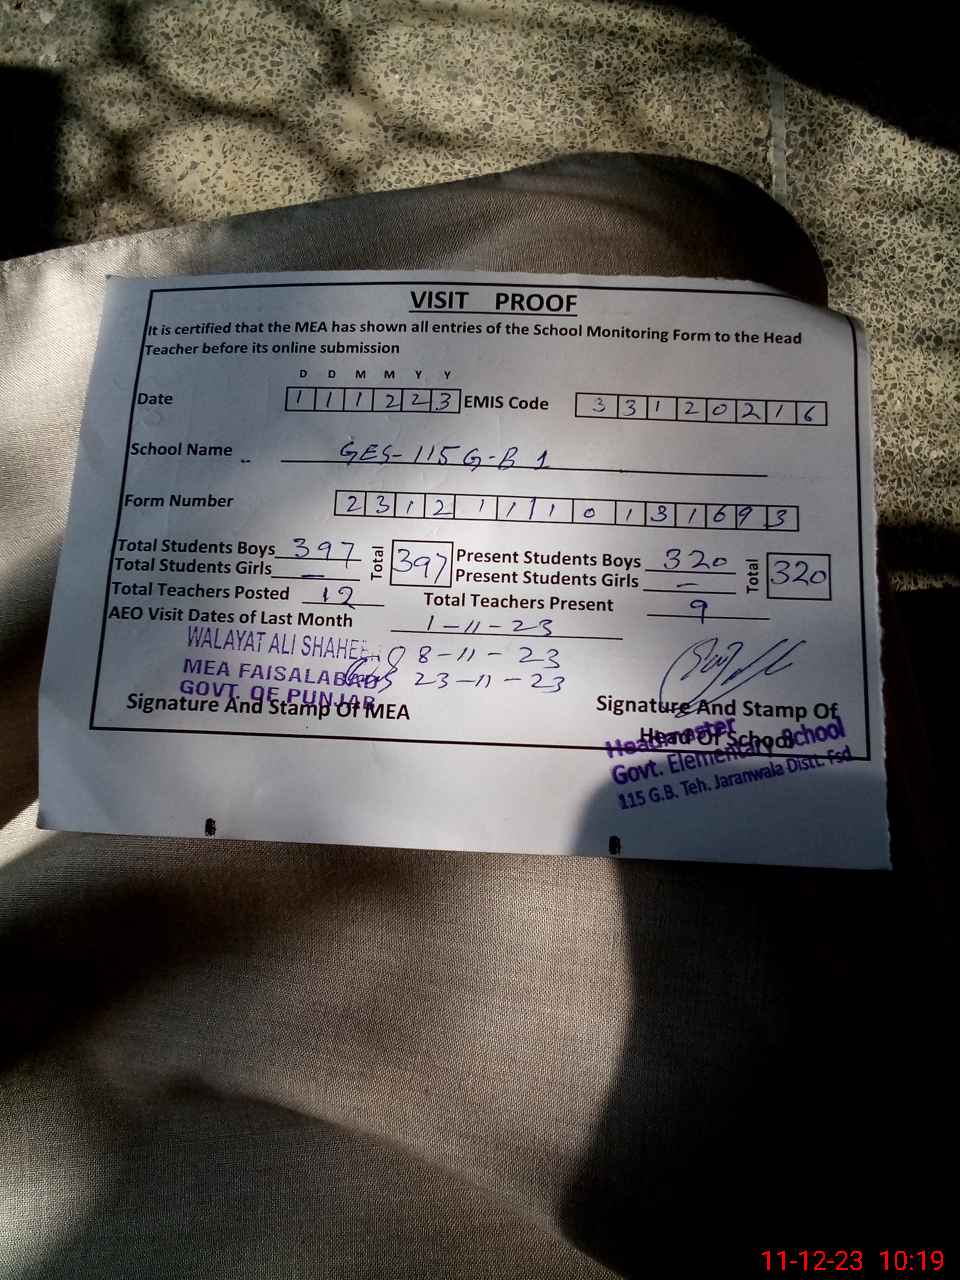 VISIT PROOF
It is certified that the MEA has shown all entries of the School Monitoring Form to the Head
Teacher before its online submission
D D M M Y Y
Date 1 1 1 2 2 3 EMIS Code 3 3 1 2 0 2 1 6
School Name GES-115 G-B 1
Form Number 2 3 1 2 1 1 1 1 0 1 3 1 6 9 3
Total Students Boys 397 Total 397 Present Students Boys 320 Total 320
Total Students Girls — Present Students Girls —
Total Teachers Posted 12 Total Teachers Present 9
AEO Visit Dates of Last Month 1-11-23
8-11-23
23-11-23
WALAYAT ALI SHAHEEN
MEA FAISALABAD
GOVT. OF PUNJAB
Signature And Stamp Of MEA
Signature And Stamp Of
Head Of School
Headmaster
Govt. Elementary School
115 G.B. Teh. Jaranwala Distt. Fsd
11-12-23 10:19